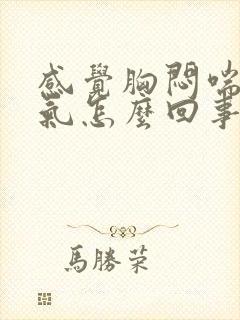 感覺胸悶喘
氣怎麼回事
馬勝荣